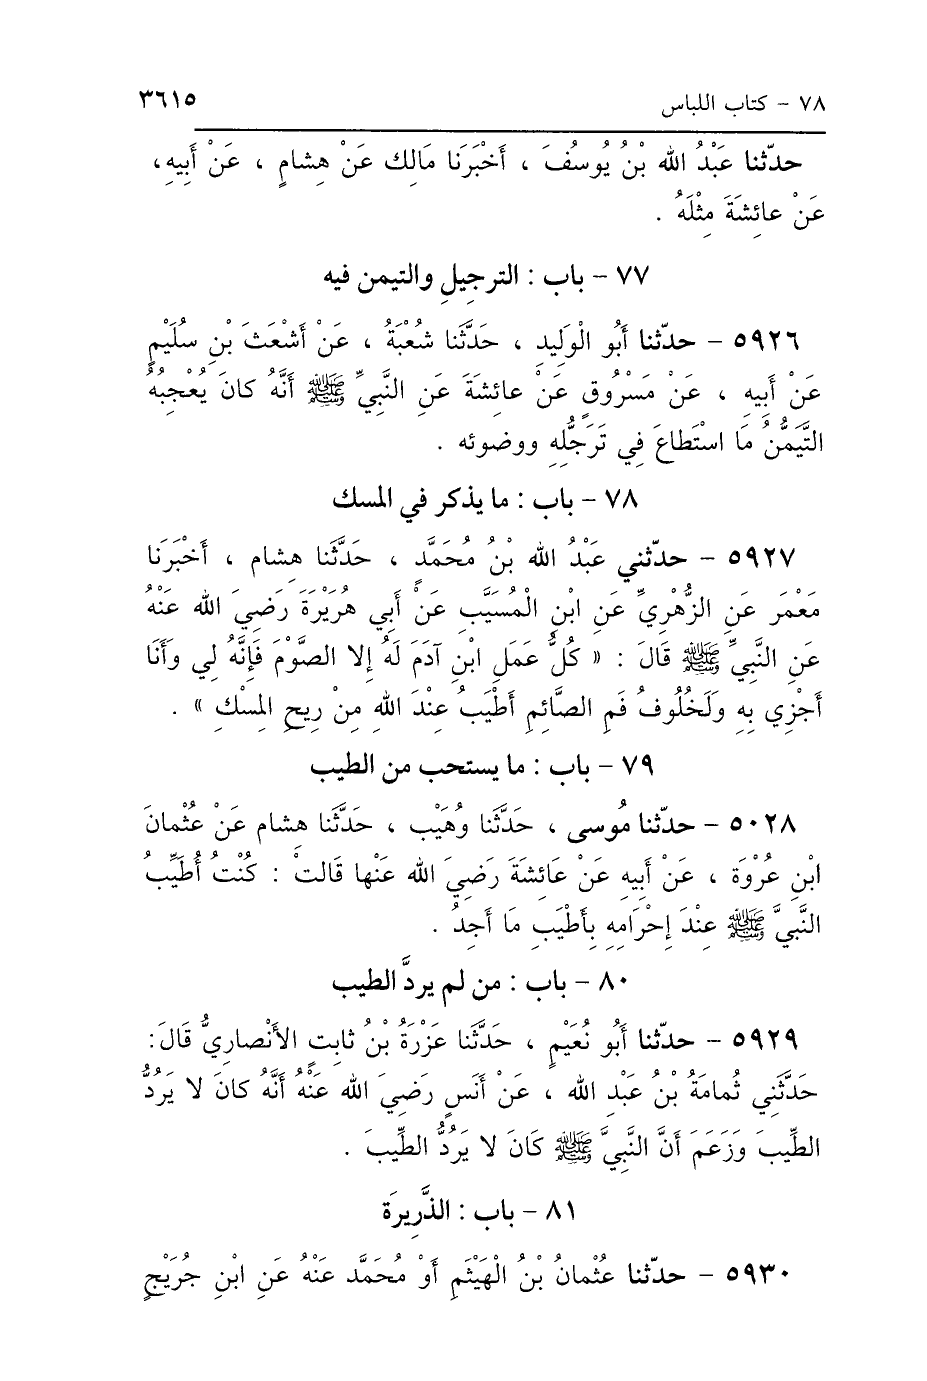 ٧٨ - كتاب اللباس ٣٦١٥
حدّثنا عَبْدُ الله بْنُ يُوسُفَ ، أَخْبَرَنَا مَالِك عَنْ هِشامٍ ، عَنْ أَبِيهِ،
عَنْ عائِشَةَ مِثْلَهُ .
٧٧ - باب : الترجيلِ والتيمن فيه
٥٩٢٦ - حدّثنا أَبُو الْوَلِيدِ ، حَدَّثَنا شُعْبَةُ ، عَنْ أَشْعَثَ بْنِ سُلَيْمٍ
عَنْ أَبِيهِ ، عَنْ مَسْرُوقٍ عَنْ عائِشَةَ عَنِ النَّبِيِّ ﷺ أَنَّهُ كانَ يُعْجِبُهُ
التَّيَمُّنُ مَا اسْتَطاعَ فِي تَرَجُّلِهِ ووضوئه .
٧٨ - باب : ما يذكر في المسك
٥٩٢٧ - حدّثني عَبْدُ الله بْنُ مُحَمَّدٍ ، حَدَّثَنا هِشام ، أَخْبَرَنا
مَعْمَر عَنِ الزُّهْرِيِّ عَنِ ابْنِ الْمُسَيَّبِ عَنْ أَبِي هُرَيْرَةَ رَضِيَ الله عَنْهُ
عَنِ النَّبِيِّ ﷺ قَالَ : « كُلُّ عَمَلِ ابْنِ آدَمَ لَهُ إِلا الصَّوْمَ فَإِنَّهُ لِي وَأَنَا
أَجْزِي بِهِ وَلَخُلُوفُ فَمِ الصَّائِمِ أَطْيَبُ عِنْدَ اللهِ مِنْ رِيحِ المِسْكِ » .
٧٩ - باب : ما يستحب من الطيب
٥٠٢٨ - حدّثنا مُوسى ، حَدَّثَنا وُهَيْب ، حَدَّثَنا هِشام عَنْ عُثْمانَ
ابْنِ عُرْوَةَ ، عَنْ أَبِيهِ عَنْ عَائِشَةَ رَضِيَ الله عَنْها قالَتْ : كُنْتُ أُطَيِّبُ
النَّبِيَّ ﷺ عِنْدَ إِحْرَامِهِ بِأَطْيَبِ مَا أَجِدُ .
٨٠ - باب : من لم يردَّ الطيب
٥٩٢٩ - حدّثنا أَبُو نُعَيْمٍ ، حَدَّثَنا عَزْرَةُ بْنُ ثابِتٍ الأَنْصارِيُّ قَالَ:
حَدَّثَنِي ثُمامَةُ بْنُ عَبْدِ الله ، عَنْ أَنَسٍ رَضِيَ الله عَنْهُ أَنَّهُ كانَ لا يَرُدُّ
الطِّيبَ وَزَعَمَ أَنَّ النَّبِيَّ ﷺ كَانَ لا يَرُدُّ الطِّيبَ .
٨١ - باب : الذَّرِيرَة
٥٩٣٠ - حدّثنا عُثْمانُ بْنُ الْهَيْثَمِ أَوْ مُحَمَّد عَنْهُ عَنِ ابْنِ جُرَيْجٍ